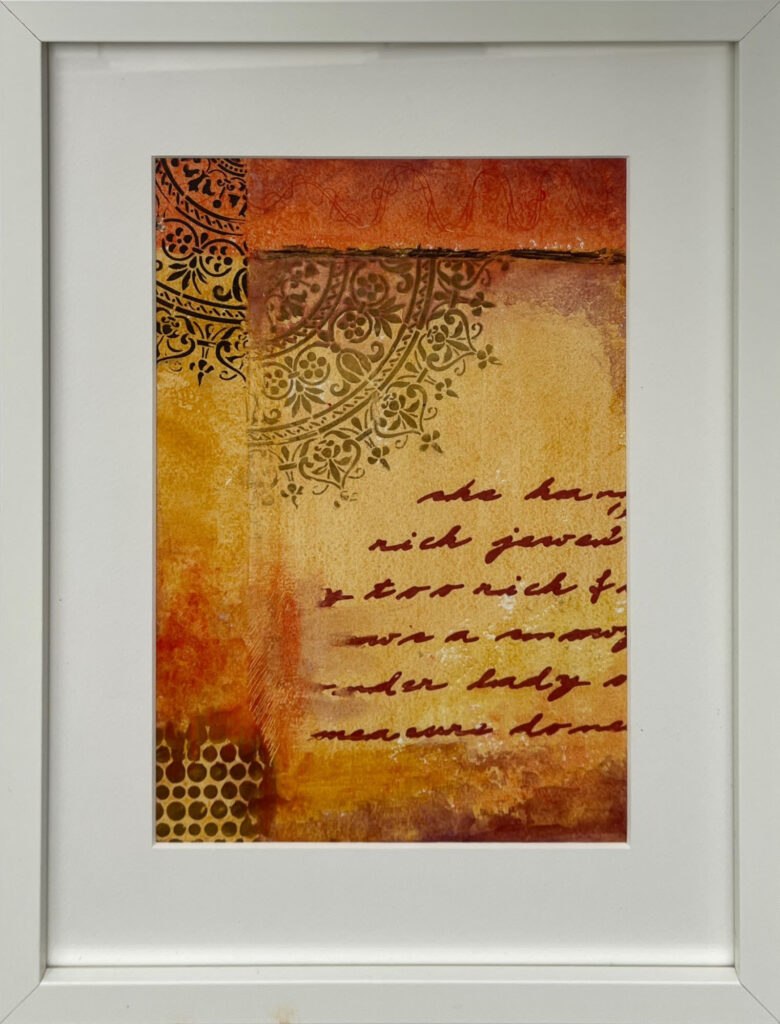 she hang
rich jewel
y too rich f
ows a snowy
nder lady o
measure done